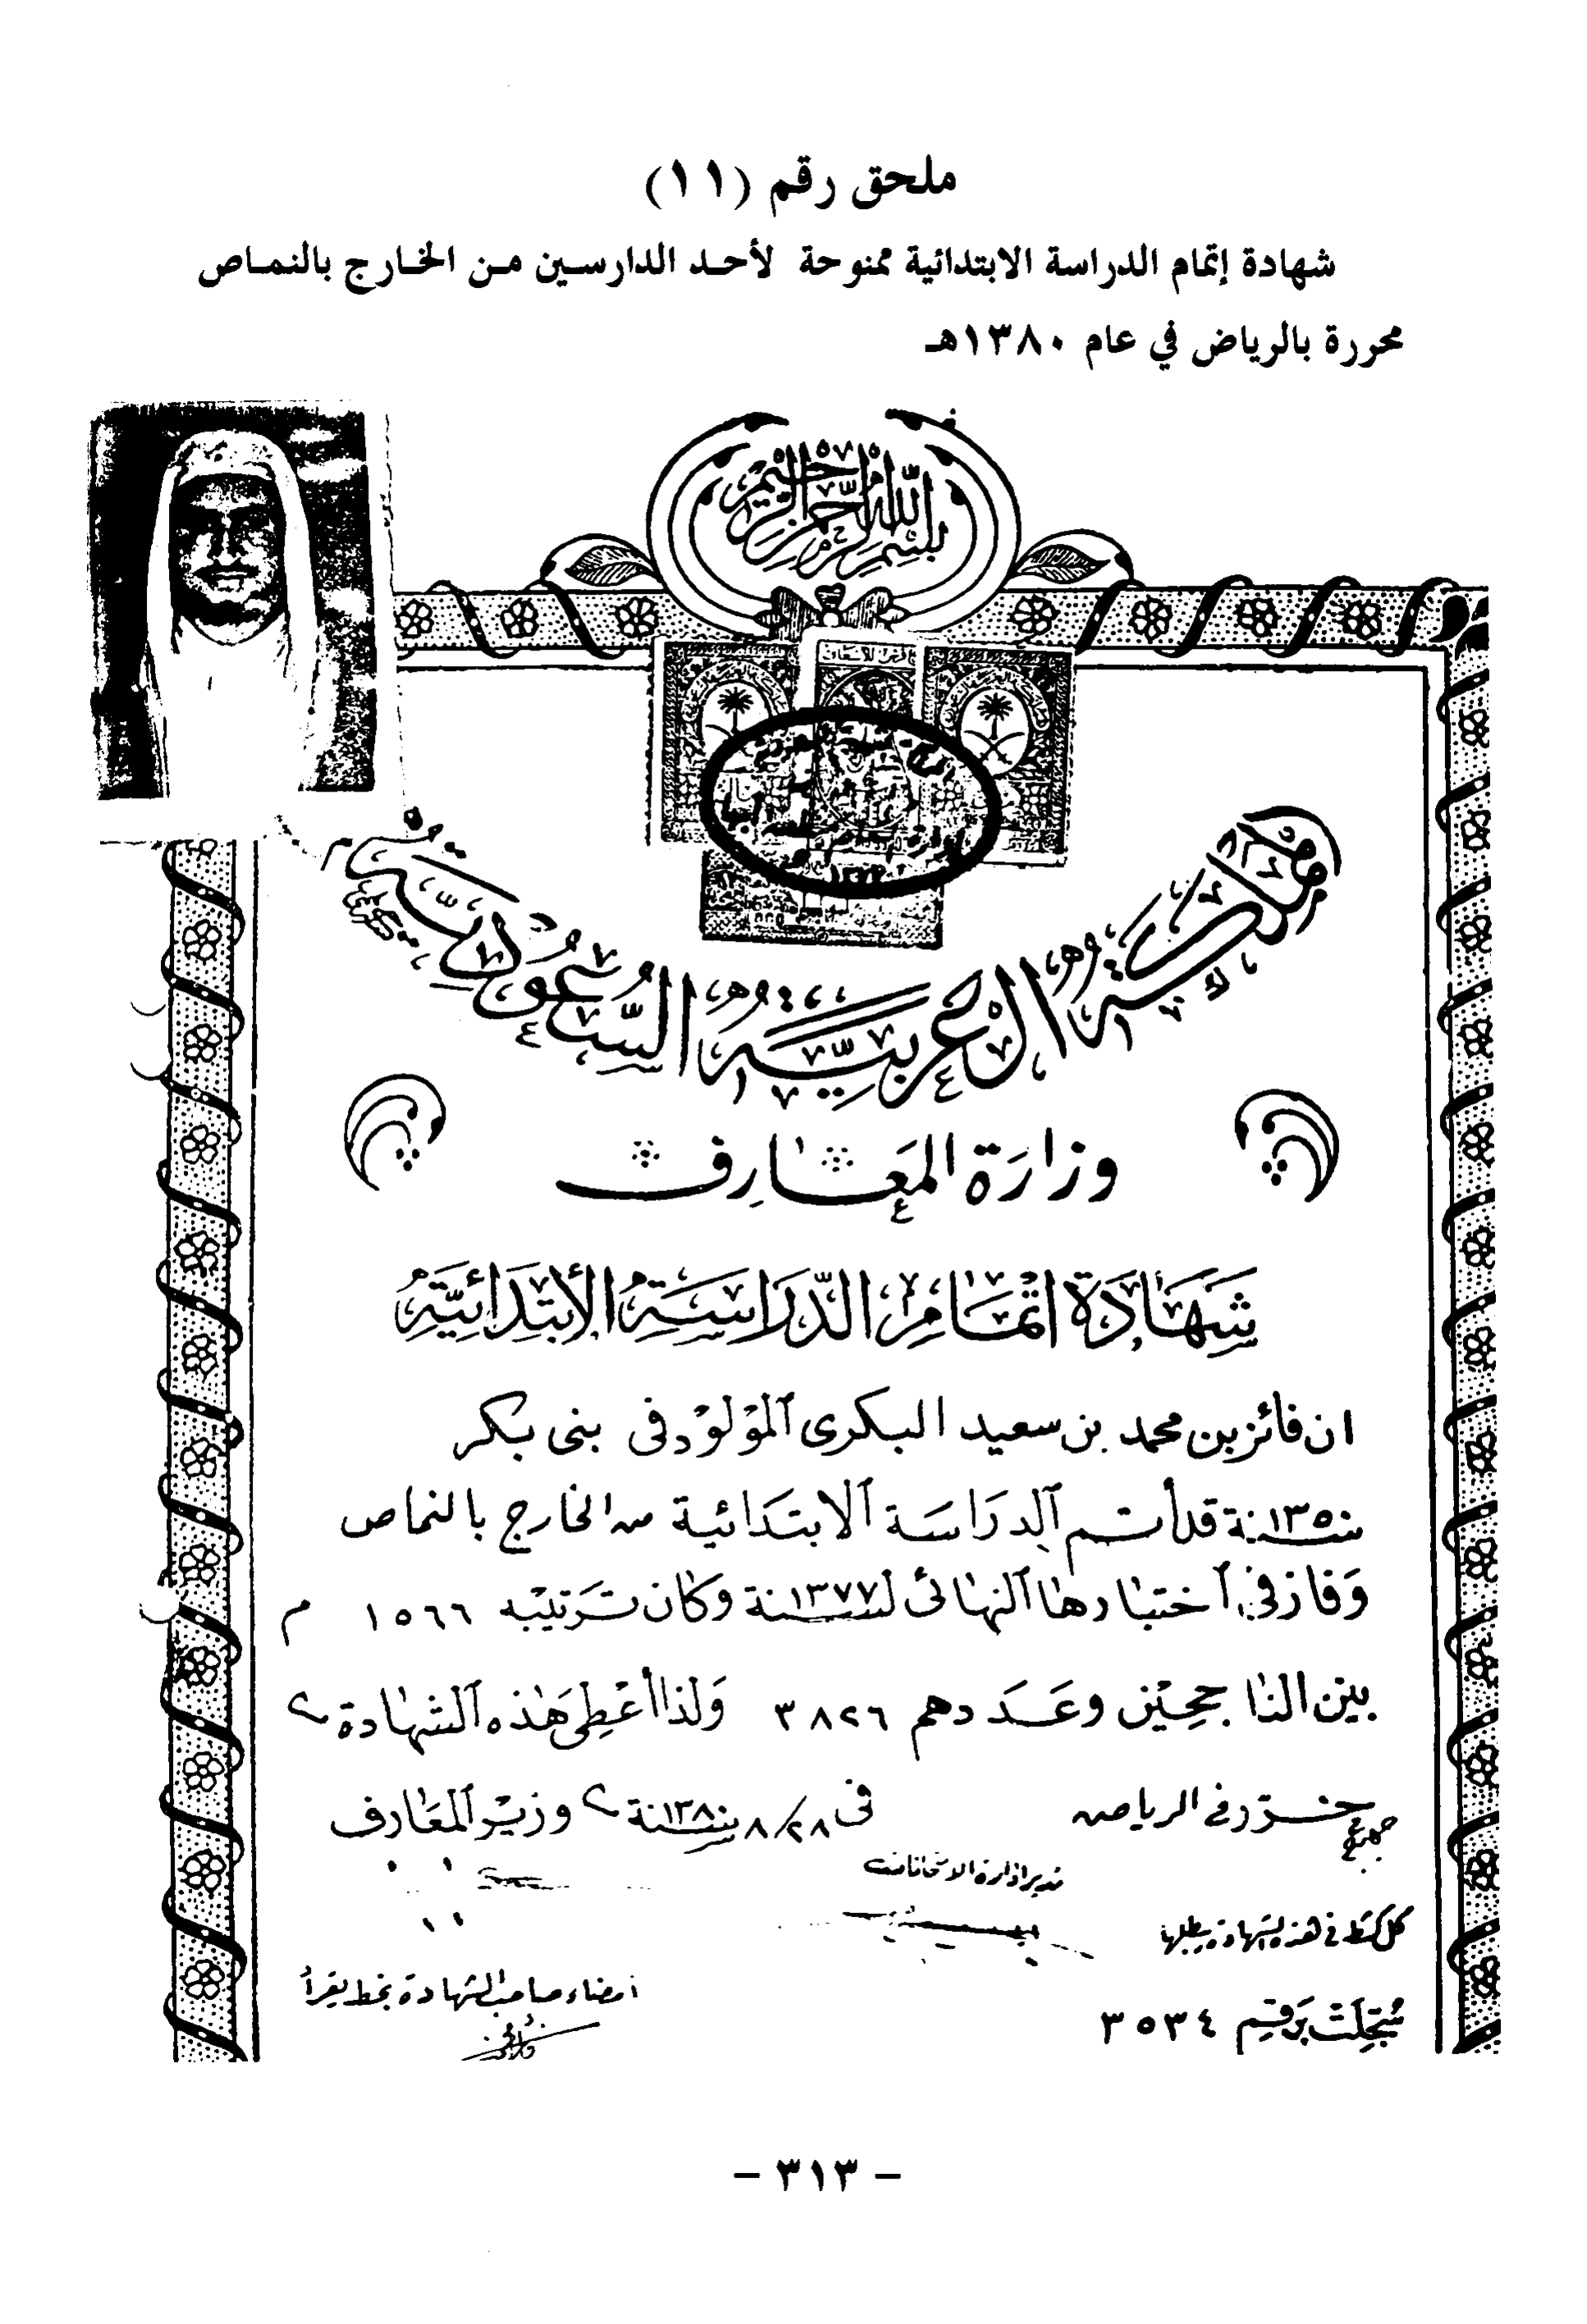 ملحق رقم (١١)
شهادة إتمام الدراسة الابتدائية ممنوحة لأحد الدارسين من الخارج بالنماص
محررة بالرياض في عام ١٣٨٠هـ
بسم الله الرحمن الرحيم
المملكة العربية السعودية
وزارة المعارف
شهادة اتمام الدراسة الابتدائية
ان فائز بن محمد بن سعيد البكرى المولود فى بنى بكر
سنة ١٣٥٠ قد أتم الدراسة الابتدائية من الخارج بالنماص
وفاز في اختبارها النهائى لسنة ١٣٧٧ وكان ترتيبه ١٥٦٦ م
بين الناجحين وعددهم ٣٨٢٦ ولذا أعطى هذه الشهادة
حرر في الرياض فى ٨/٢٨ سنة ١٣٨٠ وزير المعارف
مدير ادارة الامتحانات
كل كشط في هذه الشهادة يبطلها
امضاء صاحب الشهادة بخط يقرأ
سجلت برقم ٣٥٣٤
- ٣١٣ -